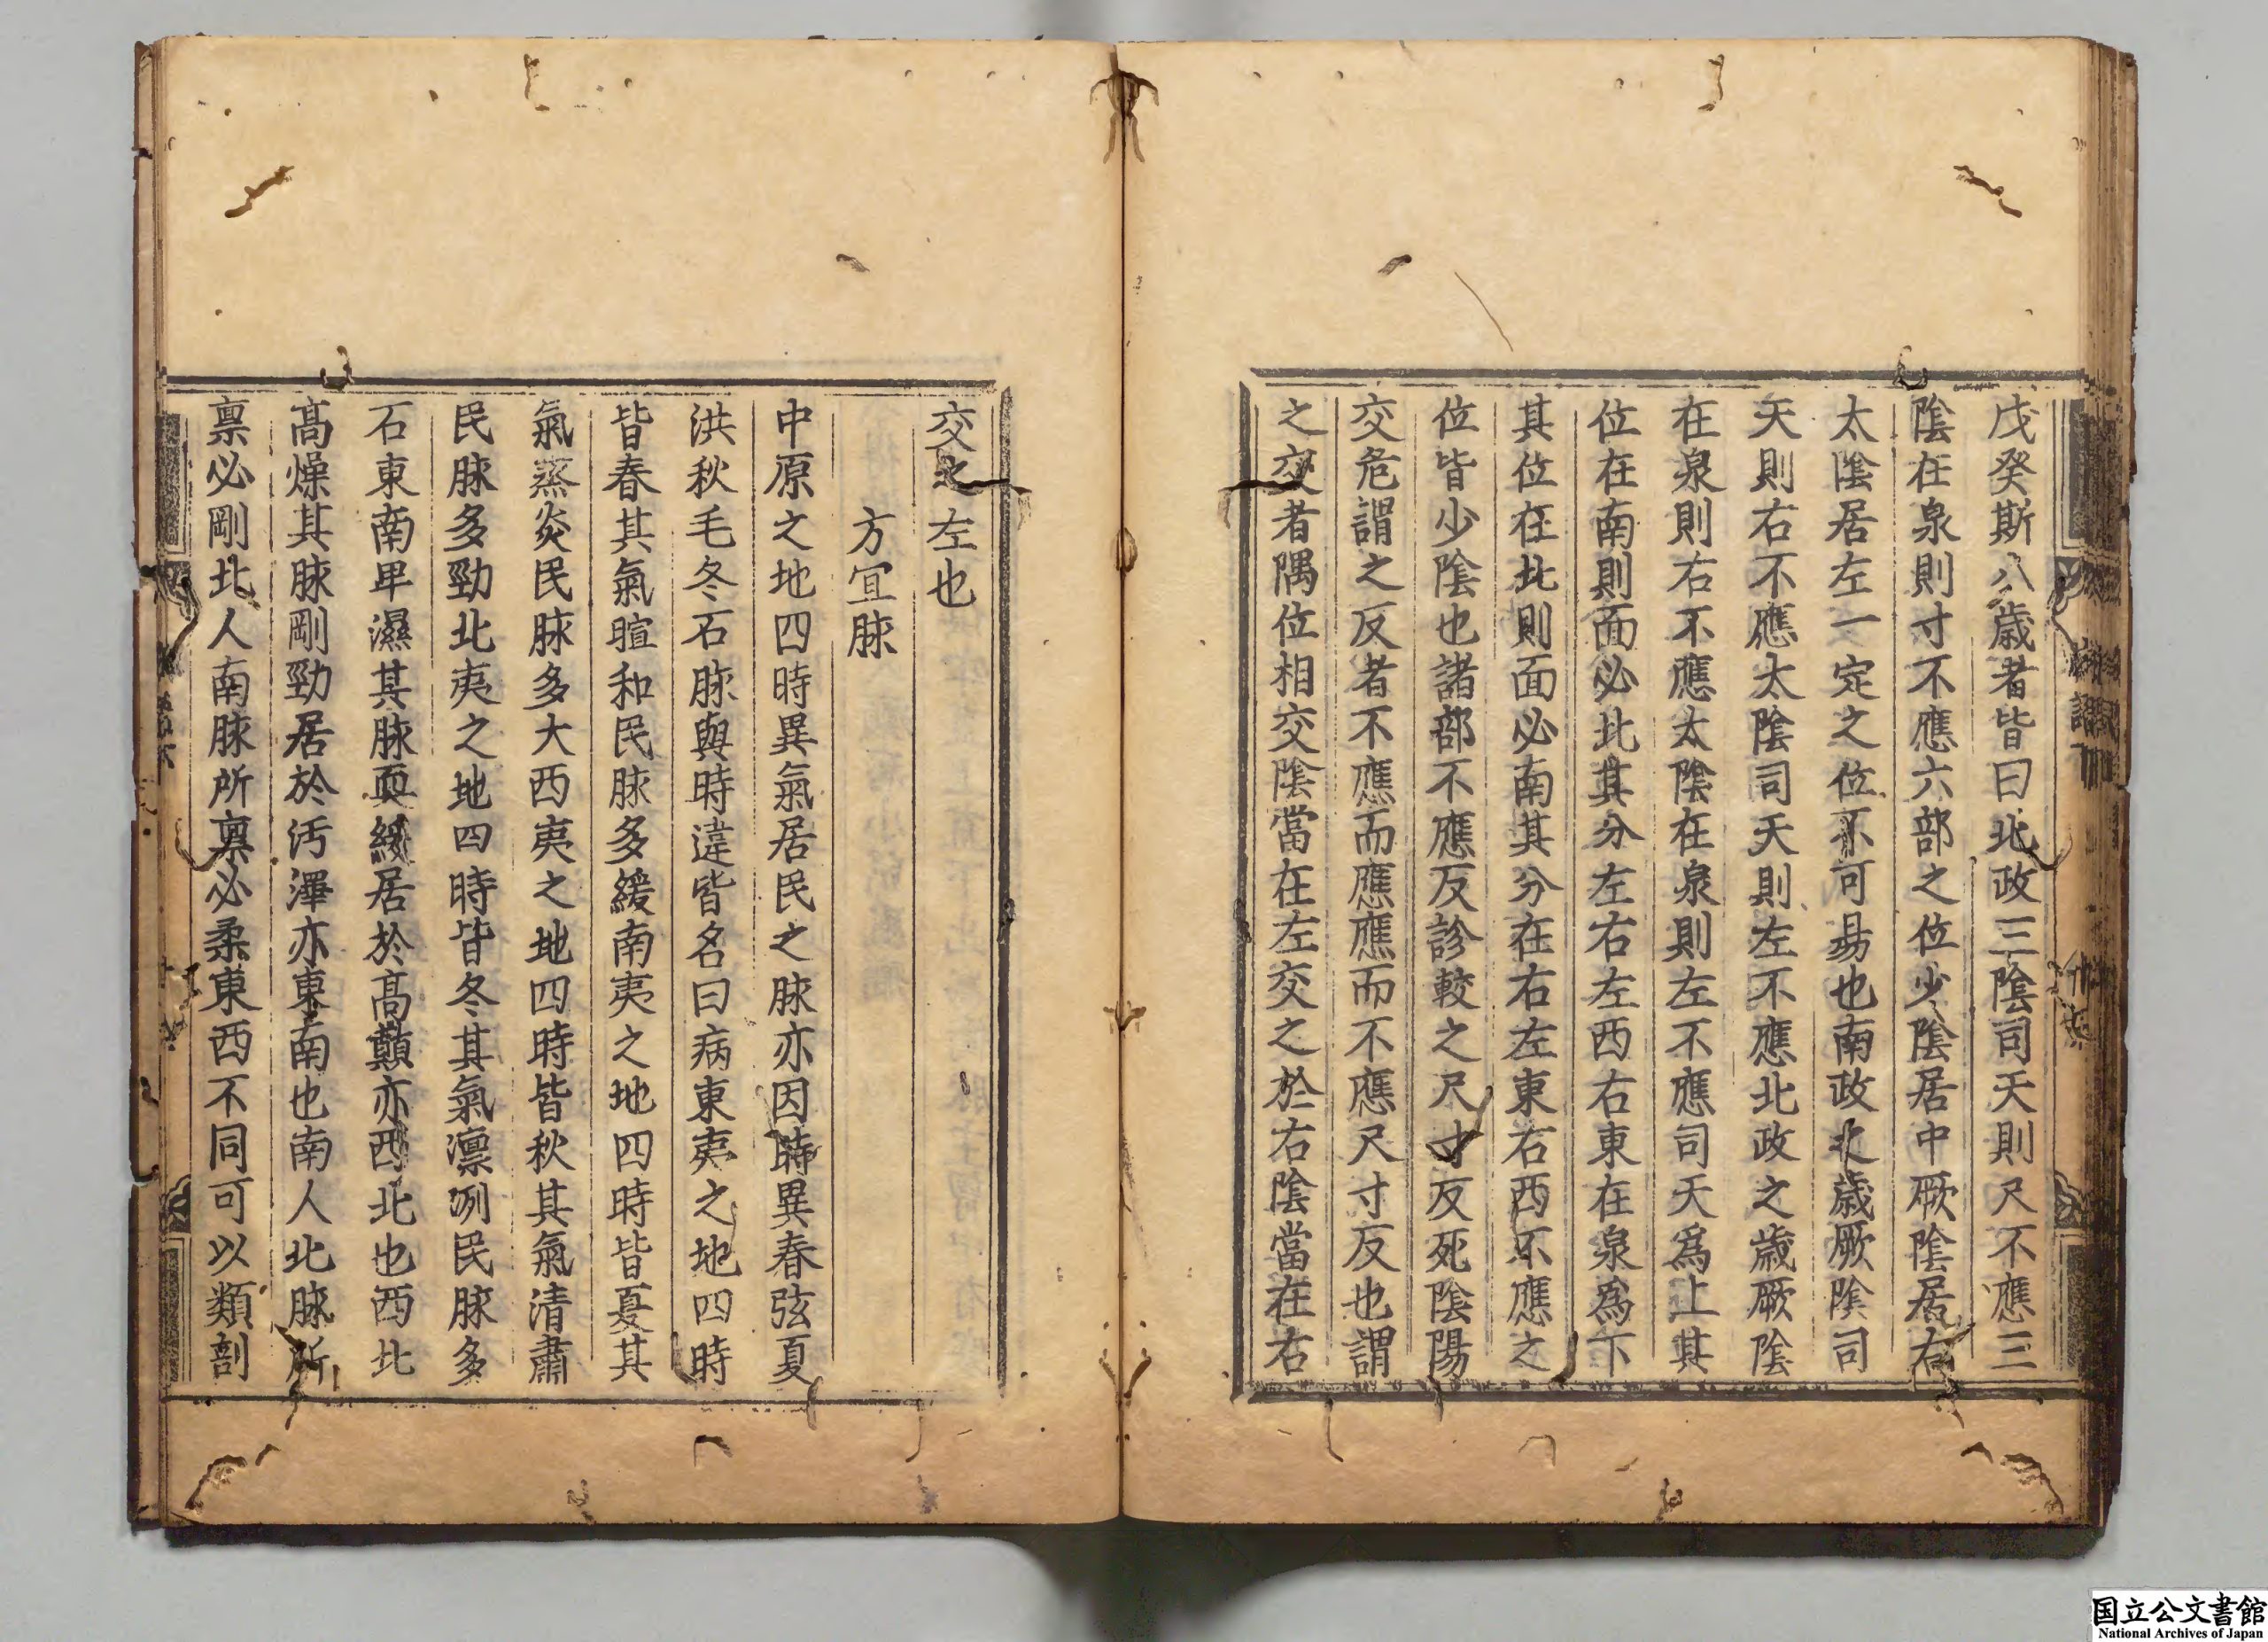 戊癸斯八歳者皆曰北政三陰司天則尺不應三
陰在泉則寸不應六部之位少陰居中厥陰居右
太陰居左一定之位不可易也南政之歳厥陰司
天則右不應太陰司天則左不應北政之歳厥陰
在泉則右不應太陰在泉則左不應司天爲上其
位在南則面必北其分左右左西右東在泉爲下
其位在北則面必南其分在右左東右西不應之
位皆少陰也諸部不應反診較之尺寸反死陰陽
交危謂之反者不應而應應而不應尺寸反也謂
之交者隅位相交陰當在左交之於右陰當在右
交之左也
方冝脉
中原之地四時異氣居民之脉亦因時異春弦夏
洪秋毛冬石脉與時違皆名曰病東夷之地四時
皆春其氣暄和民脉多緩南夷之地四時皆夏其
氣蒸炎民脉多大西夷之地四時皆秋其氣清肅
民脉多勁北夷之地四時皆冬其氣凛冽民脉多
石東南卑濕其脉耎緩居於高巔亦西北也西北
高燥其脉剛勁居於汚澤亦東南也南人北脉所
禀必剛北人南脉所禀必柔東西不同可以類剖
国立公文書館
National Archives of Japan